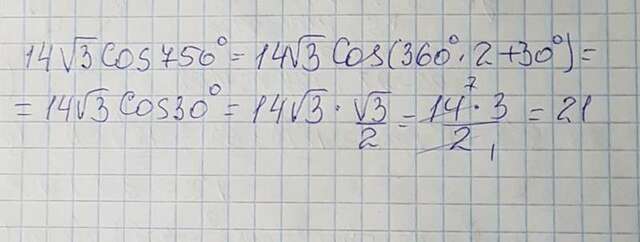 14√3 cos 750° = 14√3 cos(360°·2+30°) =
= 14√3 cos30° = 14√3 · √3/2 = 14·3/2 = 21
7
1